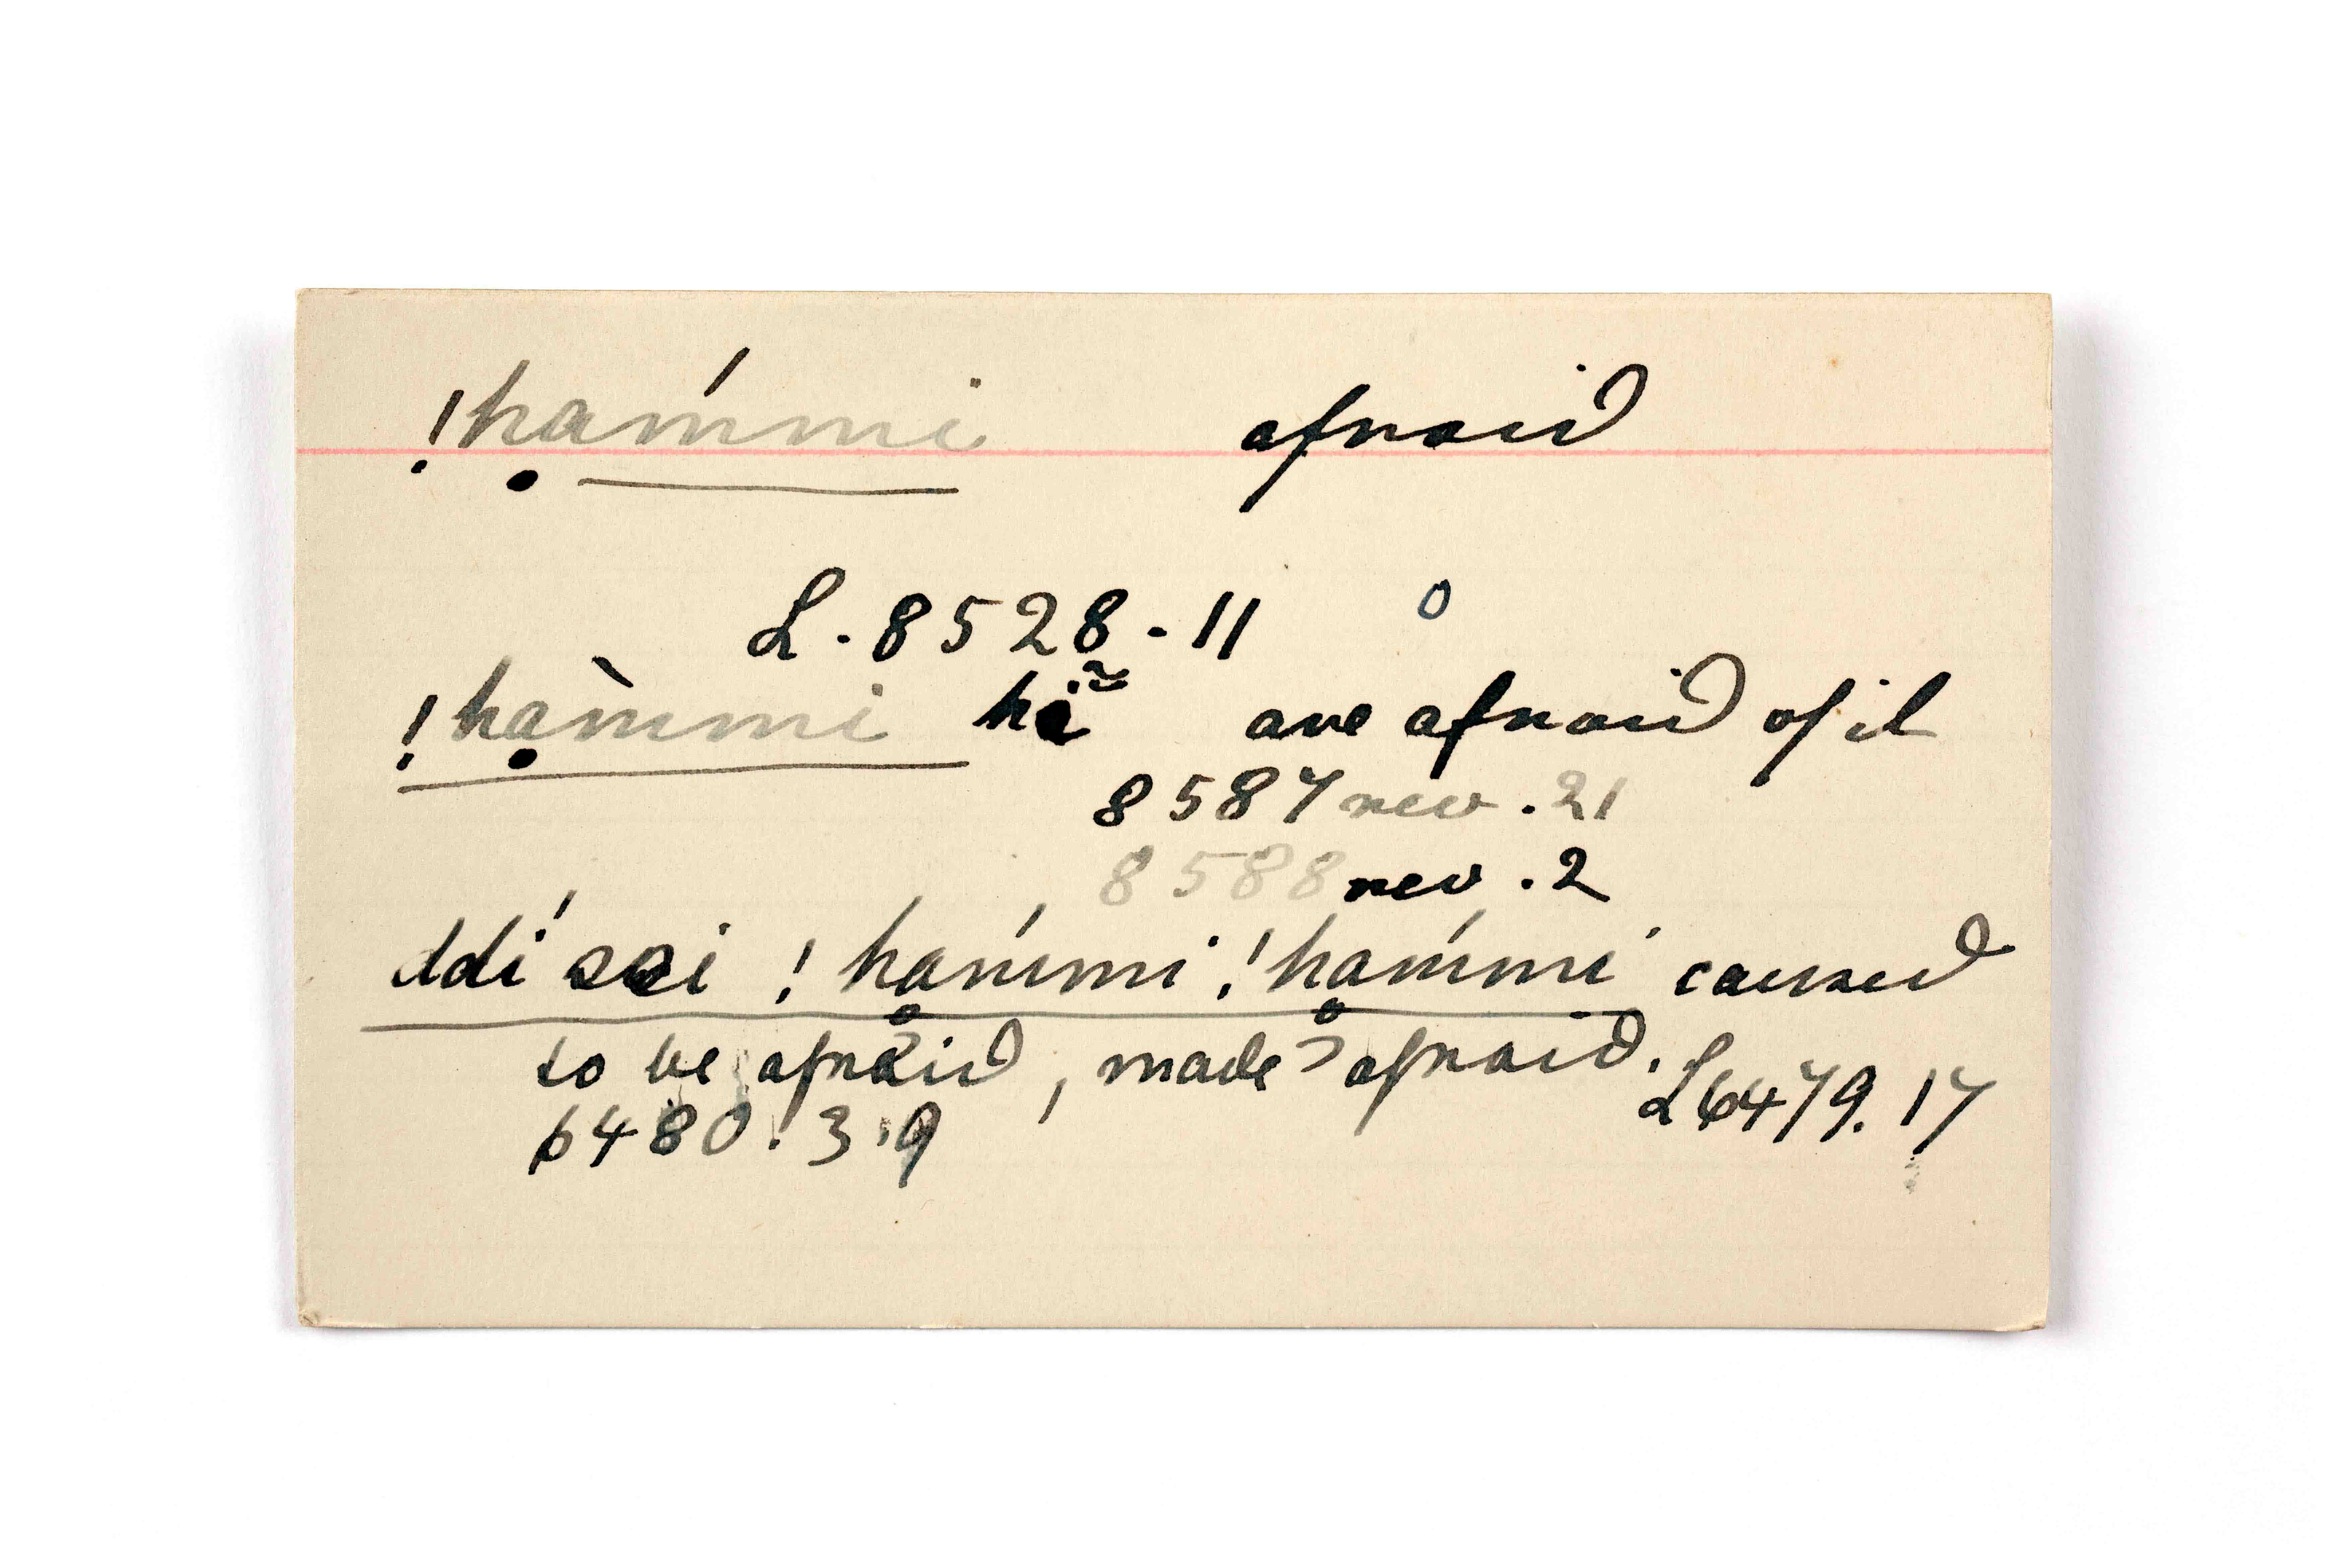 !hạḿmi afraid
L. 8528 - 11 0
!hạm̀mi hĩ are afraid of it
8587 rev. 21
8588 rev. 2
ddí ssi !hạḿmi !hạḿmi caused
to be afraid, made afraid. L 6479. 17
6480. 3. 9